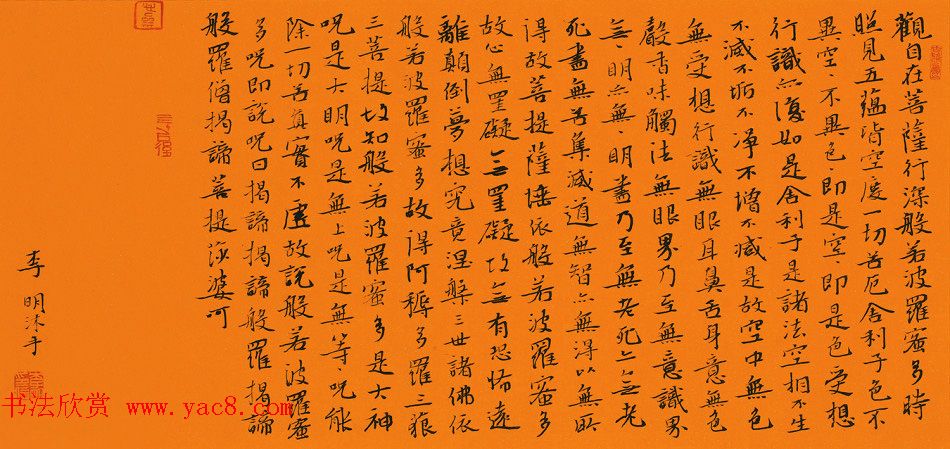 觀自在菩薩行深般若波羅蜜多時
照見五蘊皆空度一切苦厄舍利子色不
異空〻不異色〻即是空即是色受想
行識亦復如是舍利子是諸法空相不生
不滅不垢不淨不增不減是故空中無色
無受想行識無眼耳鼻舌身意無色
聲香味觸法無眼界乃至無意識界
無〻明亦無〻明盡乃至無老死亦無老
死盡無苦集滅道無智亦無得以無所
得故菩提薩埵依般若波羅蜜多
故心無罣礙無罣礙故無有恐怖遠
離顛倒夢想究竟涅槃三世諸佛依
般若波羅蜜多故得阿耨多羅三藐
三菩提故知般若波羅蜜多是大神
呪是大明呪是無上呪是無等〻呪能
除一切苦真實不虛故說般若波羅蜜
多呪即說呪曰揭諦揭諦般羅揭諦
般羅僧揭諦菩提莎婆訶
李明沐手
书法欣赏 www.yac8.com